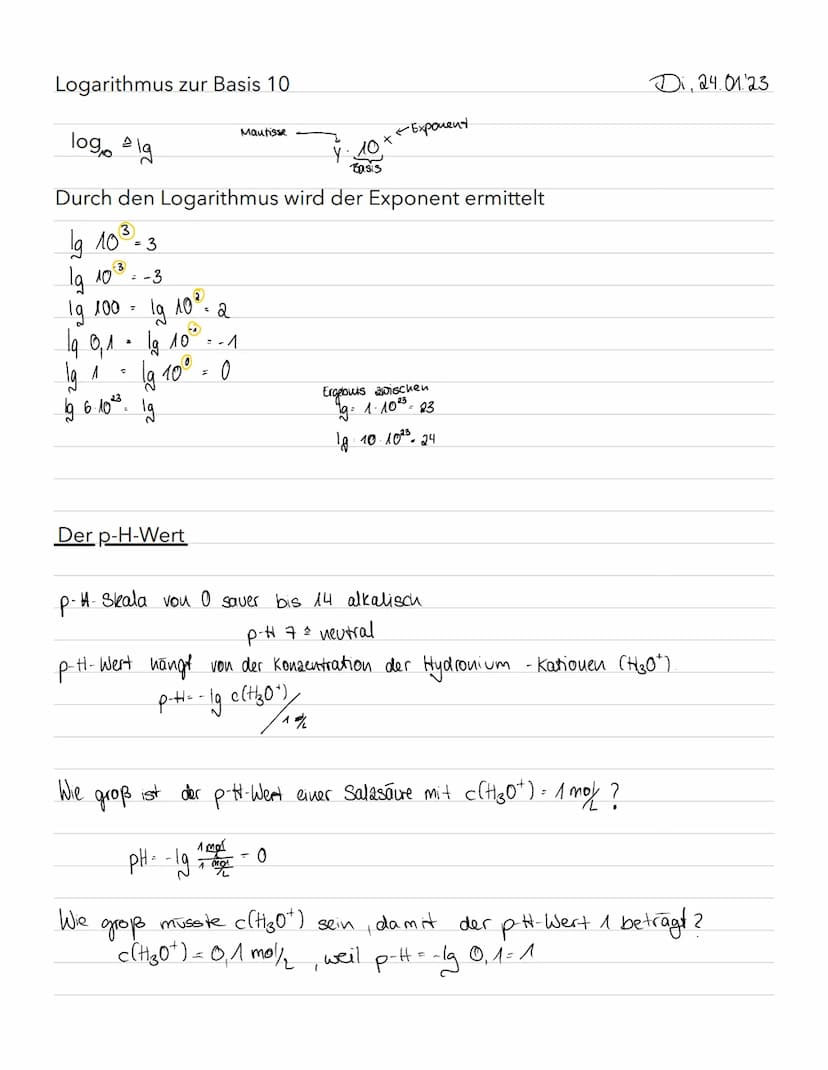 Logarithmus zur Basis 10 Di, 24.01.'23
log₁₀ ≙ lg Mantisse y · 10ˣ ← Exponent
Basis
Durch den Logarithmus wird der Exponent ermittelt
lg 10³ = 3
lg 10⁻³ = -3
lg 100 = lg 10² = 2
lg 0,1 = lg 10⁻¹ = -1
lg 1 = lg 10⁰ = 0
Ergebnis zwischen
lg 6·10²³ = lg lg = 1·10²³ = 23
lg · 10·10²³ = 24
Der p-H-Wert
p-H-Skala von 0 sauer bis 14 alkalisch
p-H 7 ≙ neutral
p-H-Wert hängt von der Konzentration der Hydronium-Kationen (H₃O⁺)
p-H = -lg c(H₃O⁺)/
1 mol/L
Wie groß ist der p-H-Wert einer Salzsäure mit c(H₃O⁺) = 1 mol/L ?
pH = -lg 1 mol/L / 1 mol/L = 0
Wie groß müsste c(H₃O⁺) sein, damit der p-H-Wert 1 beträgt?
c(H₃O⁺) = 0,1 mol/L , weil p-H = -lg 0,1 = 1